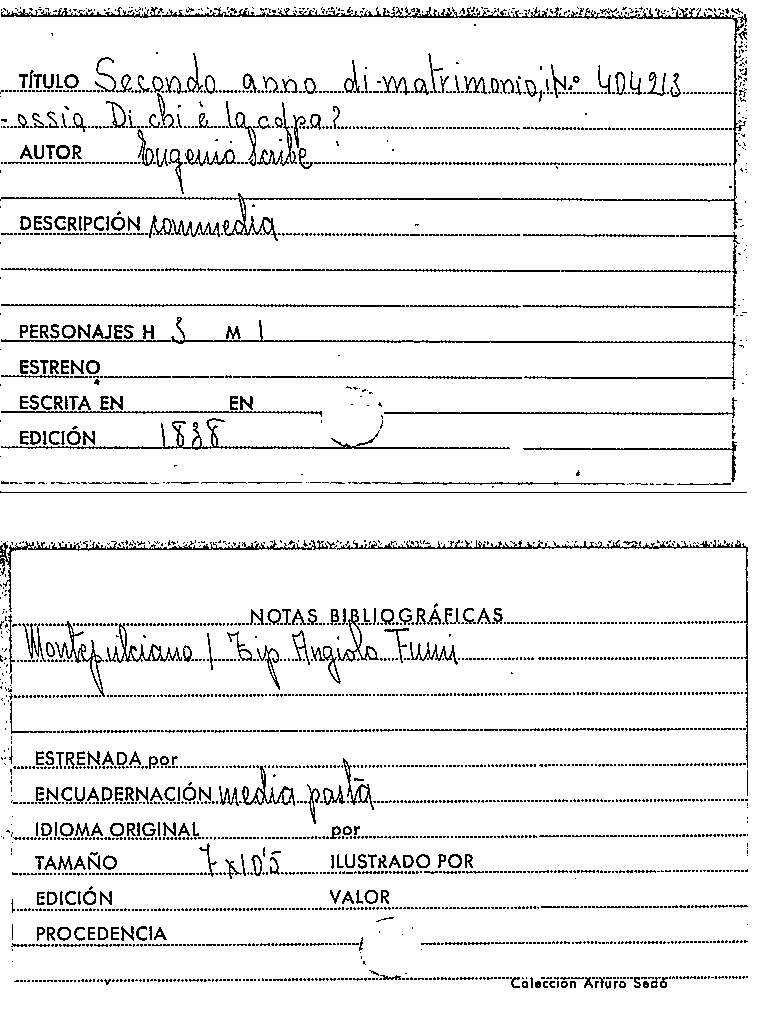 TÍTULO Secondo anno di matrimonio, il N.º 40493
-ossia Di chi è la colpa?
AUTOR Eugenio Scribe
DESCRIPCIÓN commedia
PERSONAJES H 3 M 1
ESTRENO
ESCRITA EN EN
EDICIÓN 1838
NOTAS BIBLIOGRÁFICAS
Montepulciano / Tip Angiolo Fumi
ESTRENADA por
ENCUADERNACIÓN media pasta
IDIOMA ORIGINAL por
TAMAÑO 7 x 10'5 ILUSTRADO POR
EDICIÓN VALOR
PROCEDENCIA
Colección Arturo Sedó